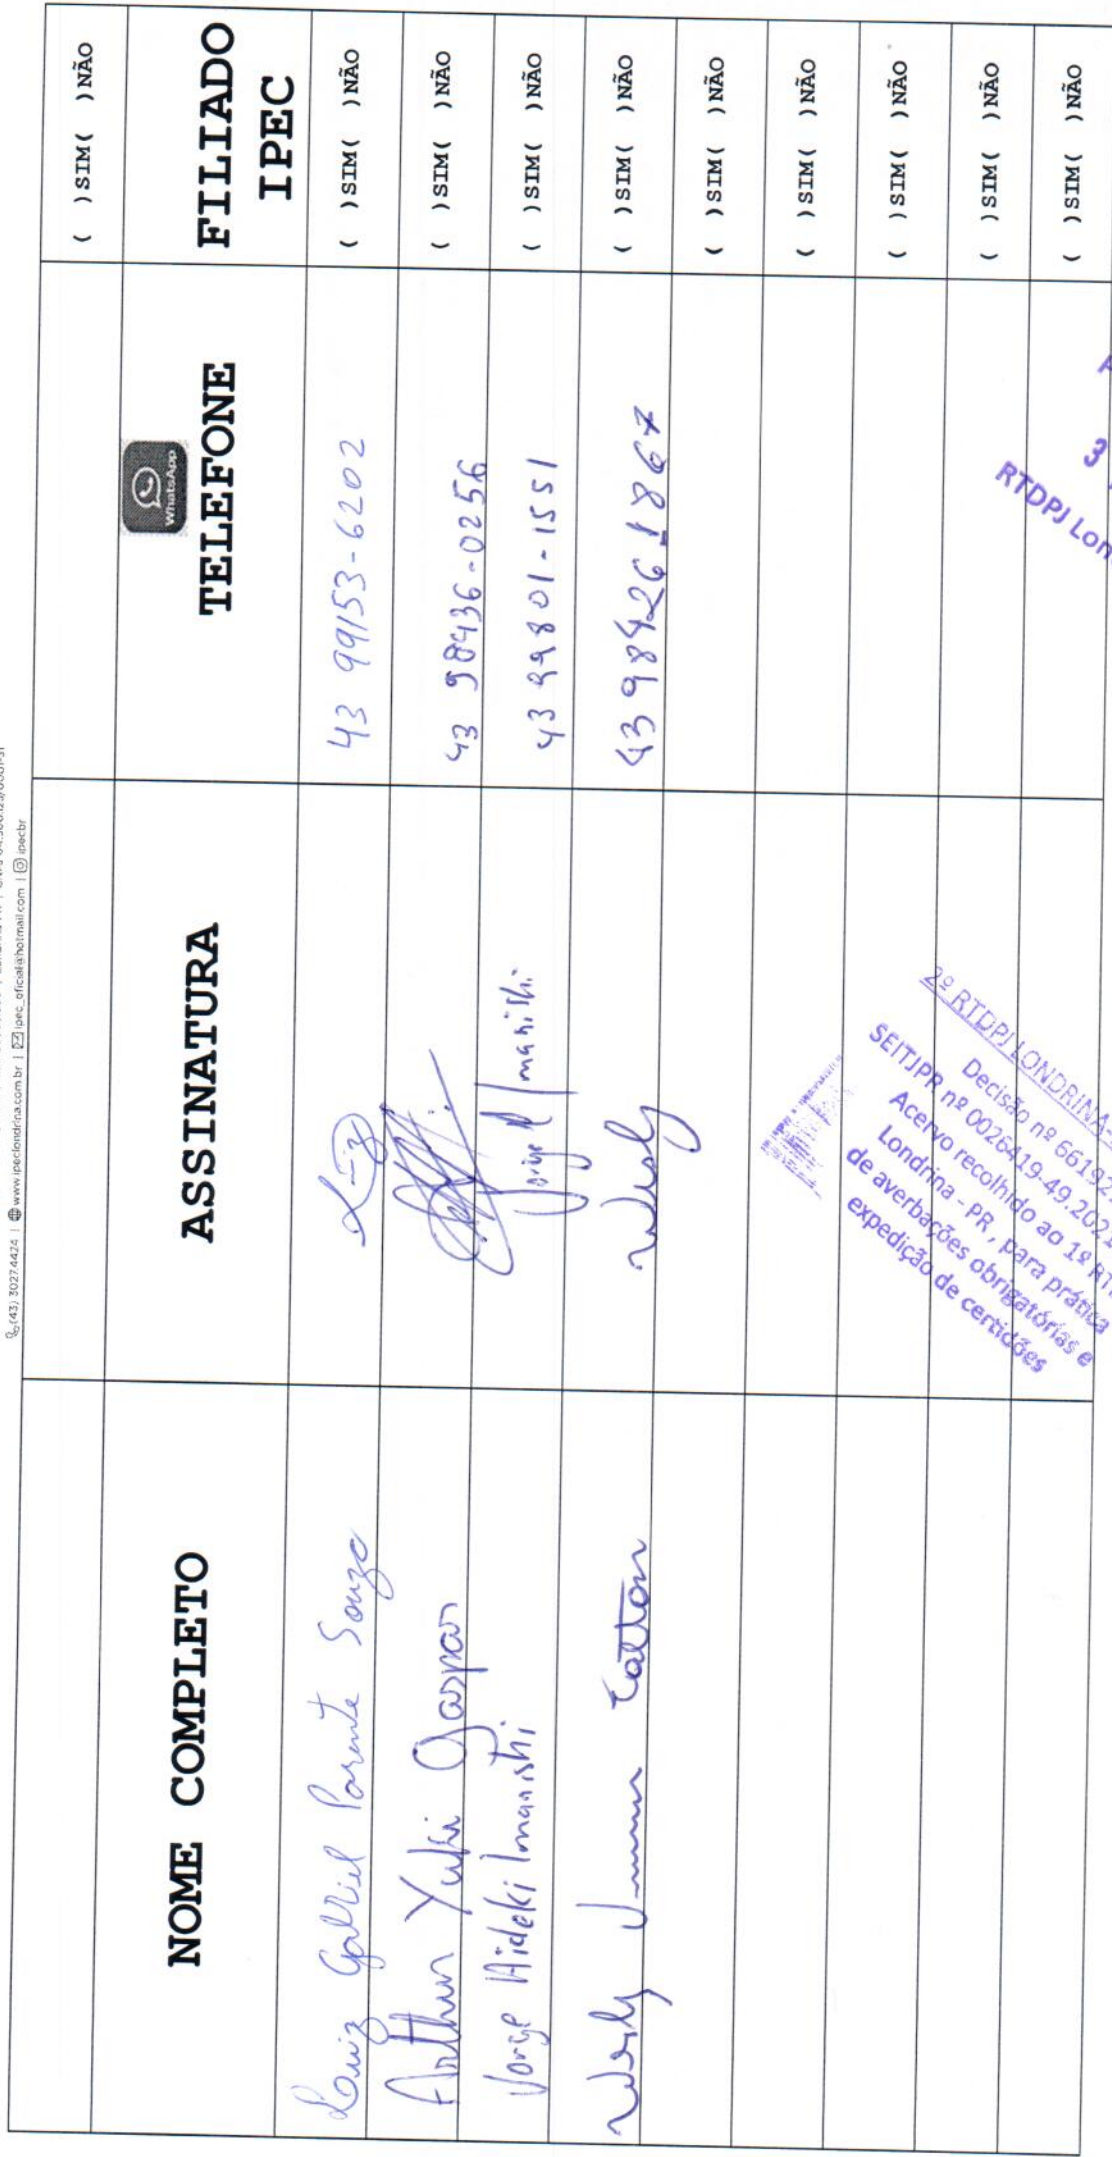 (43) 30274424 | www.ipeclondrina.com.br | ipec_oficial@hotmail.com | ipecbr
( )SIM( )NÃO
NOME COMPLETO ASSINATURA WhatsApp TELEFONE FILIADO IPEC
Luiz Gabriel Parente Souza Luiz 43 99153-6202 ( )SIM( )NÃO
Arthur Yuki Gaspar 43 98436-0256 ( )SIM( )NÃO
Jorge Hideki Imanishi Jorge H Imanishi 43 99801-1551 ( )SIM( )NÃO
Wesly 43 984261867 ( )SIM( )NÃO
( )SIM( )NÃO
( )SIM( )NÃO
( )SIM( )NÃO
( )SIM( )NÃO
( )SIM( )NÃO
2º RTDPJ LONDRINA-
Decisão nº 66192
SEITJPR nº 0026419-49.2021
Acervo recolhido ao 1º RT
Londrina - PR, para prática
de averbações obrigatórias e
expedição de certidões
3
RTDPJ Lon